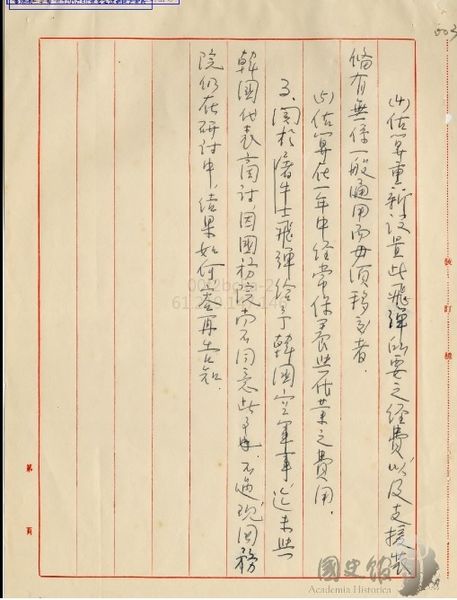 003
(4)估算重新設置此飛彈所要之經費以及支援裝
備有無係一般通用而毋須移交者.
(5)估算在一年中經常保養與作業之費用.
3.關於屠牛士飛彈給予韓國空軍事迄未與
韓國代表商討,因國務院尚不同意此事.不過,現國務
院仍在研討中,結果如何容再告知.
裝訂線
第 頁
國史館
Academia Historica